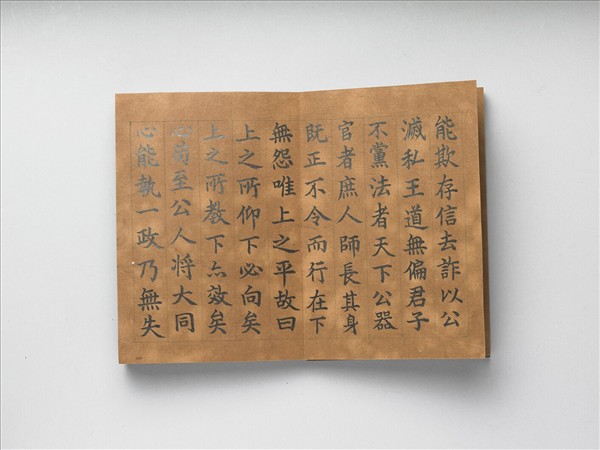 能欺存信去詐以公
滅私王道無偏君子
不黨法者天下公器
官者庶人師長其身
既正不令而行在下
無怨唯上之平故曰
上之所仰下必向矣
上之所教下亦效矣
心苟至公人將大同
心能執一政乃無失